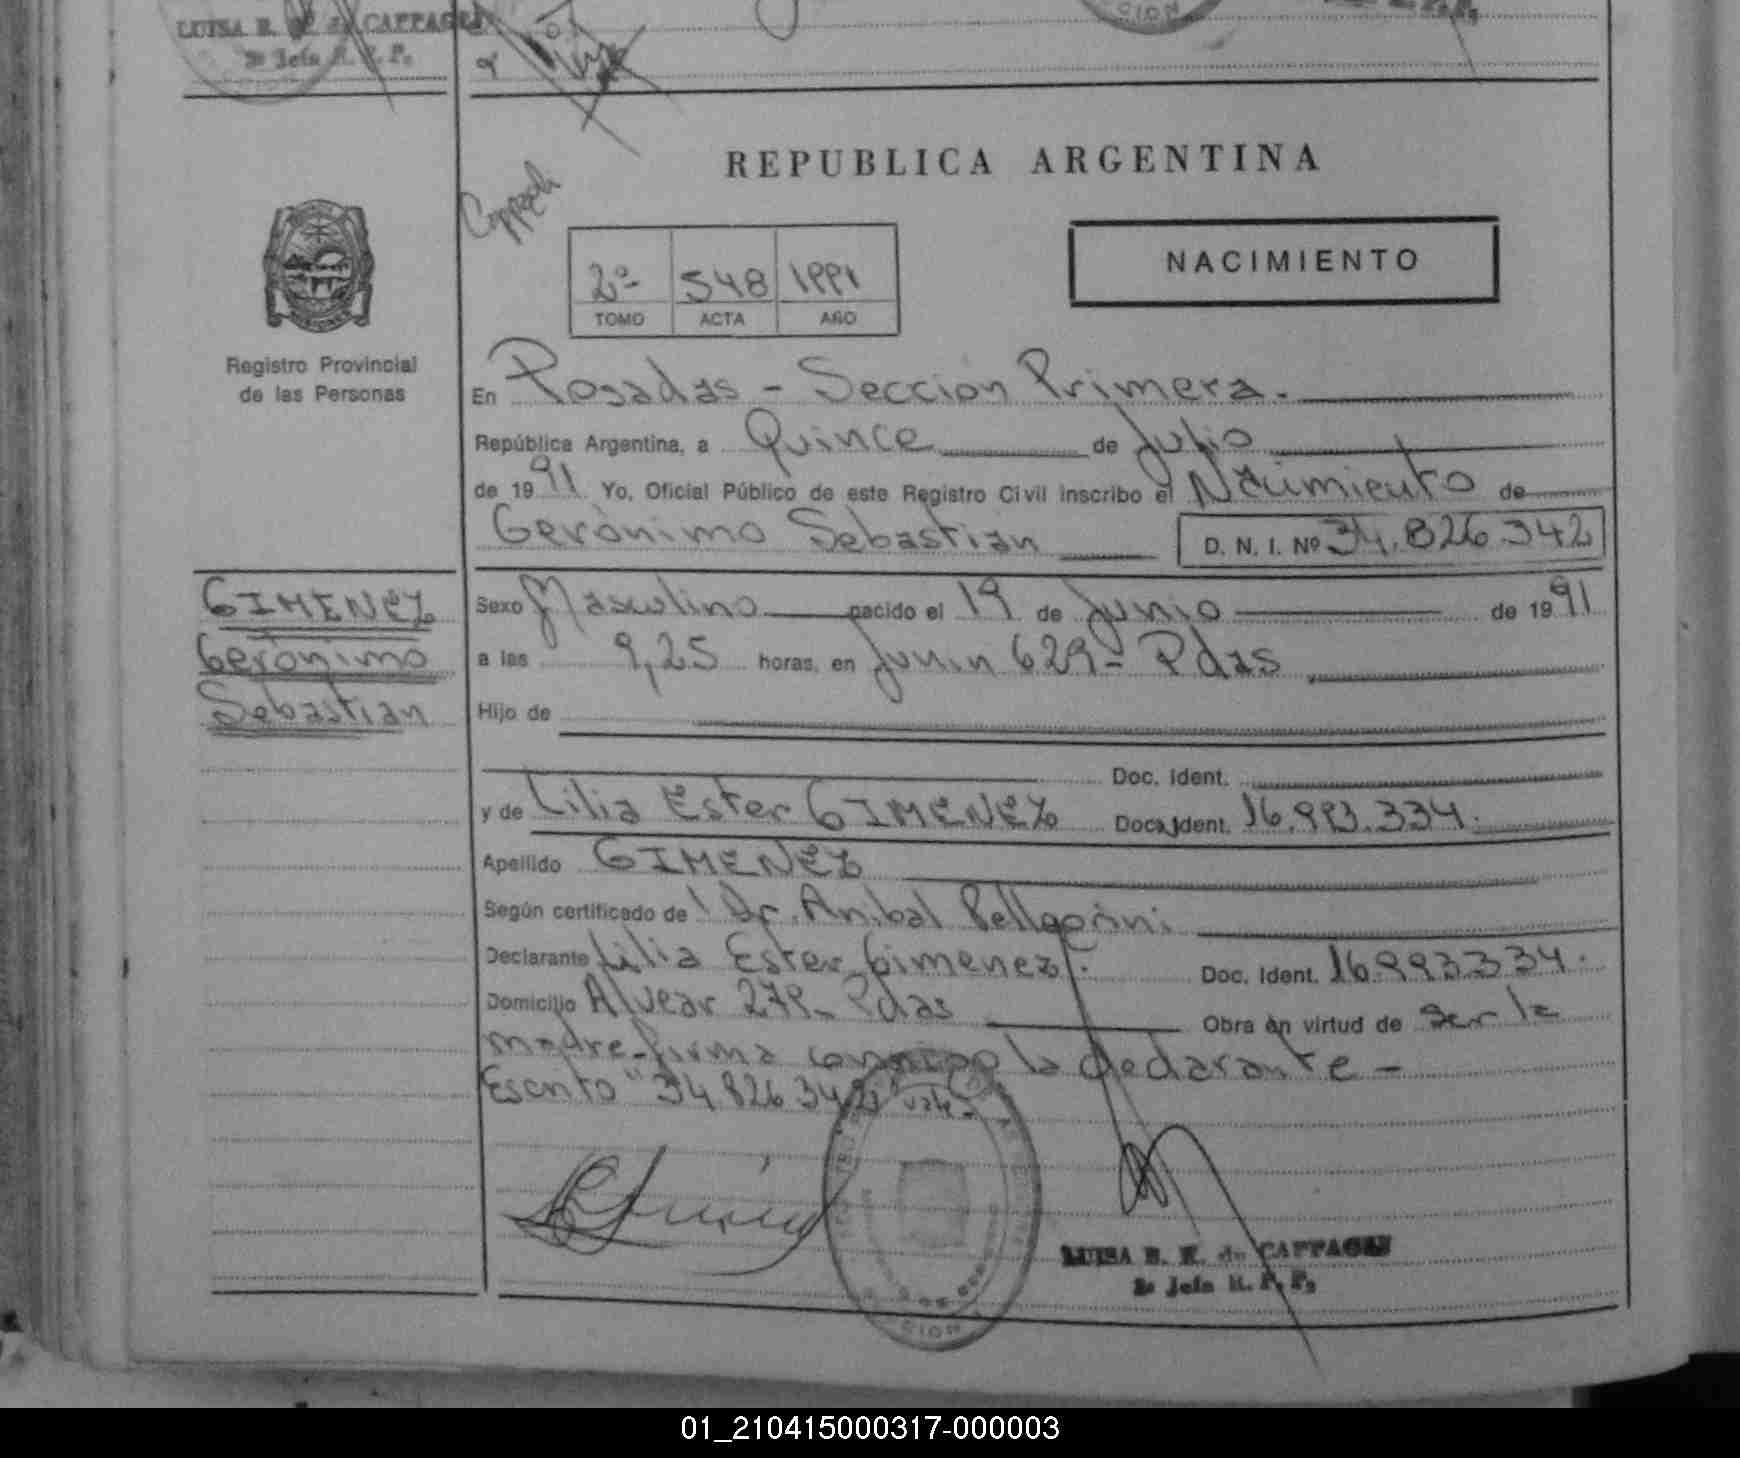 LUISA B. K. de CAPPAGLI
2º Jefa R. P. P.
CION
REPUBLICA ARGENTINA
2º 548 1991
TOMO ACTA AÑO
NACIMIENTO
Registro Provincial
de las Personas
En Posadas - Sección Primera.
República Argentina, a Quince de Julio
de 1991 Yo, Oficial Público de este Registro Civil inscribo el Nacimiento de
Gerónimo Sebastián D. N. I. Nº 34.826.342
GIMENEZ
Gerónimo
Sebastián
Sexo Masculino nacido el 19 de Junio de 1991
a las 9,25 horas, en Junin 629- Pdas
Hijo de
Doc. Ident.
y de Lilia Ester GIMENEZ Doc. Ident. 16.993.334.
Apellido GIMENEZ
Según certificado de Dr. Anibal Pellegrini
Declarante Lilia Ester Gimenez. Doc. Ident. 16.993334.
Domicilio Alvear 279- Pdas Obra en virtud de ser la
madre-firma conmigo la declarante -
Escrito "34 826 342" vale-
LUISA B. K. de CAPPAGLI
2º Jefa R. P. P.
CION
01_210415000317-000003